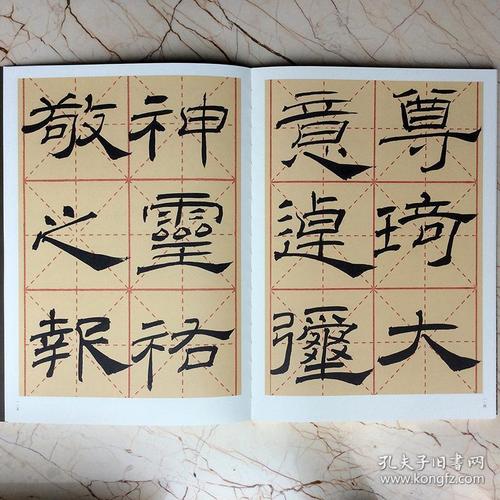 尊琦大
意逴彌
神靈祐
敬之報
孔夫子旧书网
www.kongfz.com